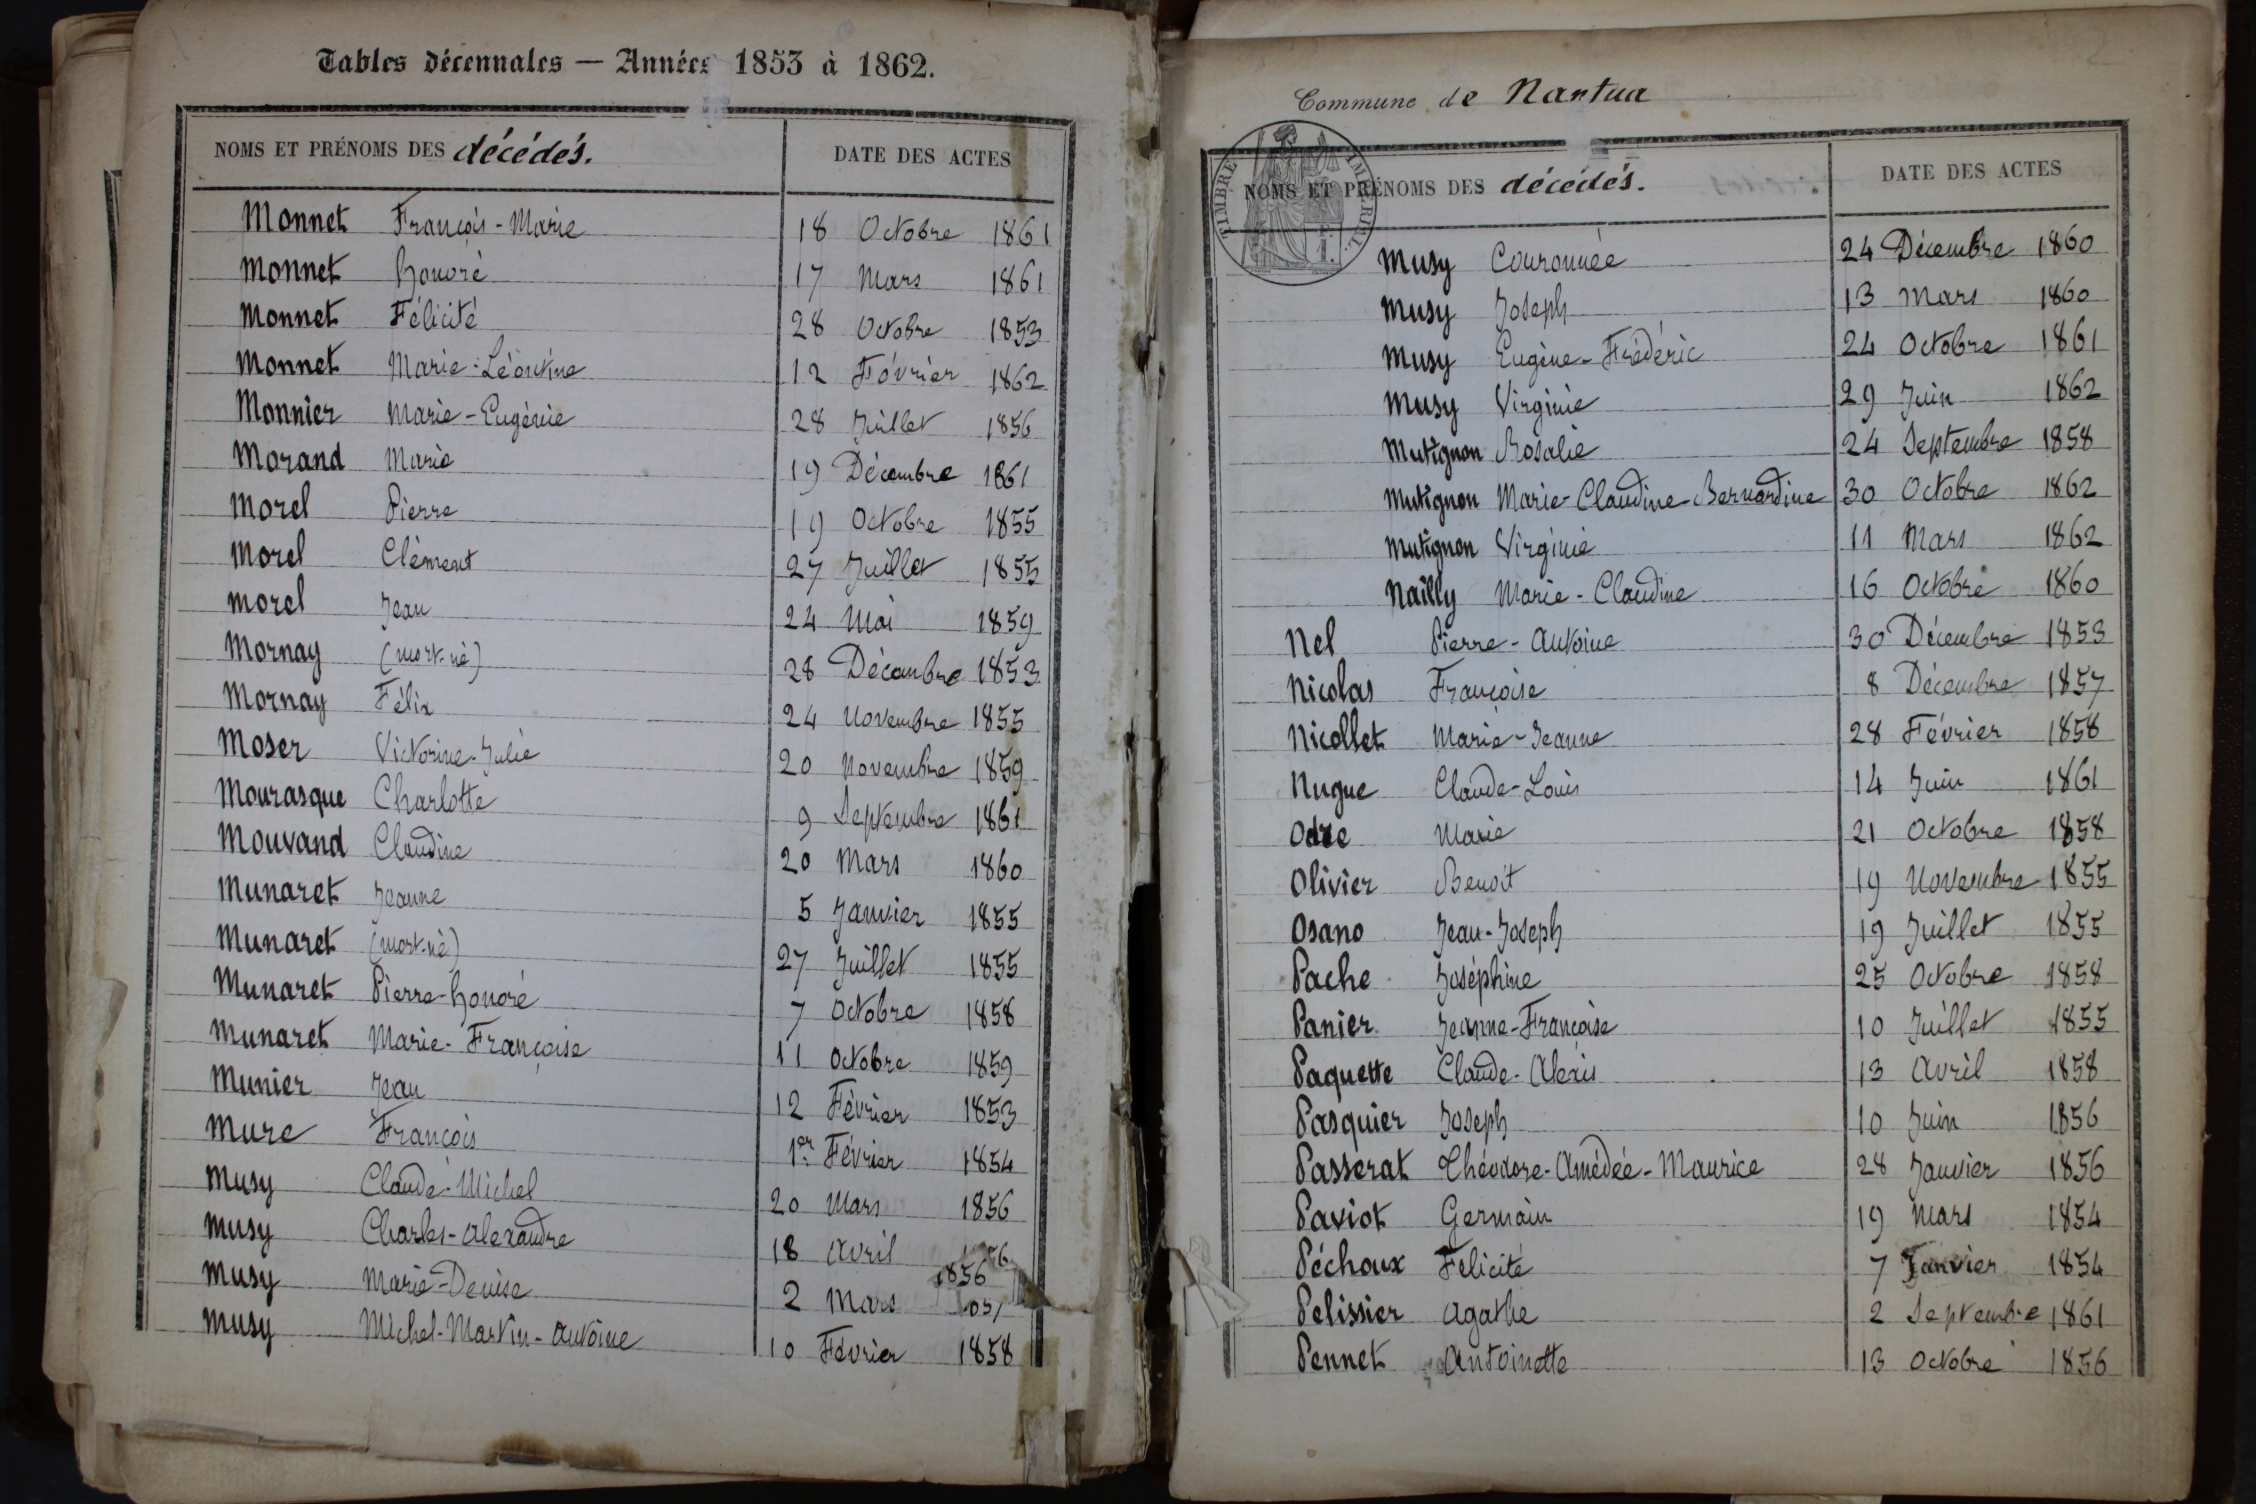 Tables décennales — Années 1853 à 1862.
NOMS ET PRÉNOMS DES décédés. DATE DES ACTES
Monnet François-Marie 18 Octobre 1861
Monnet honoré 17 Mars 1861
Monnet Félicité 28 Octobre 1853
Monnet Marie-Léontine 12 Février 1862
Monnier Marie-Eugénie 28 Juillet 1856
Morand Marie 19 Décembre 1861
Morel Pierre 19 Octobre 1855
Morel Clément 27 Juillet 1855
Morel Jean 24 Mai 1859
Mornay (mort-né) 28 Décembre 1853
Mornay Félix 24 Novembre 1855
Moser Victorine-Julie 20 Novembre 1859
Mourasque Charlotte 9 Septembre 1861
Mouvand Claudine 20 Mars 1860
Munaret Jeanne 5 Janvier 1855
Munaret (mort-né) 27 Juillet 1855
Munaret Pierre-honoré 7 Octobre 1858
Munaret Marie-Françoise 11 Octobre 1859
Munier Jean 12 Février 1853
Mure François 1er Février 1854
Musy Claude-Michel 20 Mars 1856
Musy Charles-Alexandre 18 Avril 1856
Musy Marie-Denise 2 Mars
Musy Michel-Martin-Antoine 10 Février 1858
Commune de Nantua
TIMBRE IMPÉRIAL
NOMS ET PRÉNOMS DES décédés. DATE DES ACTES
Musy Couronnée 24 Décembre 1860
Musy Joseph 13 Mars 1860
Musy Eugène-Frédéric 24 Octobre 1861
Musy Virginie 29 Juin 1862
Mutignon Rosalie 24 Septembre 1858
Mutignon Marie-Claudine-Bernardine 30 Octobre 1862
Mutignon Virginie 11 Mars 1862
Nailly Marie-Claudine 16 Octobre 1860
Nel Pierre-Antoine 30 Décembre 1853
Nicolas Françoise 8 Décembre 1857
Nicollet Marie-Jeanne 28 Février 1858
Nugue Claude-Louis 14 Juin 1861
Odre Marie 21 Octobre 1858
Olivier Benoit 19 Novembre 1855
Osano Jean-Joseph 19 Juillet 1855
Pache Joséphine 25 Octobre 1858
Panier Jeanne-Françoise 10 Juillet 1855
Paquette Claude-Alexis 13 Avril 1858
Pasquier Joseph 10 Juin 1856
Passerat Théodore-Amédée-Maurice 28 Janvier 1856
Paviot Germain 19 Mars 1854
Péchoux Félicité 7 Janvier 1854
Pelissier Agathe 2 Septembre 1861
Pennet Antoinette 13 Octobre 1856